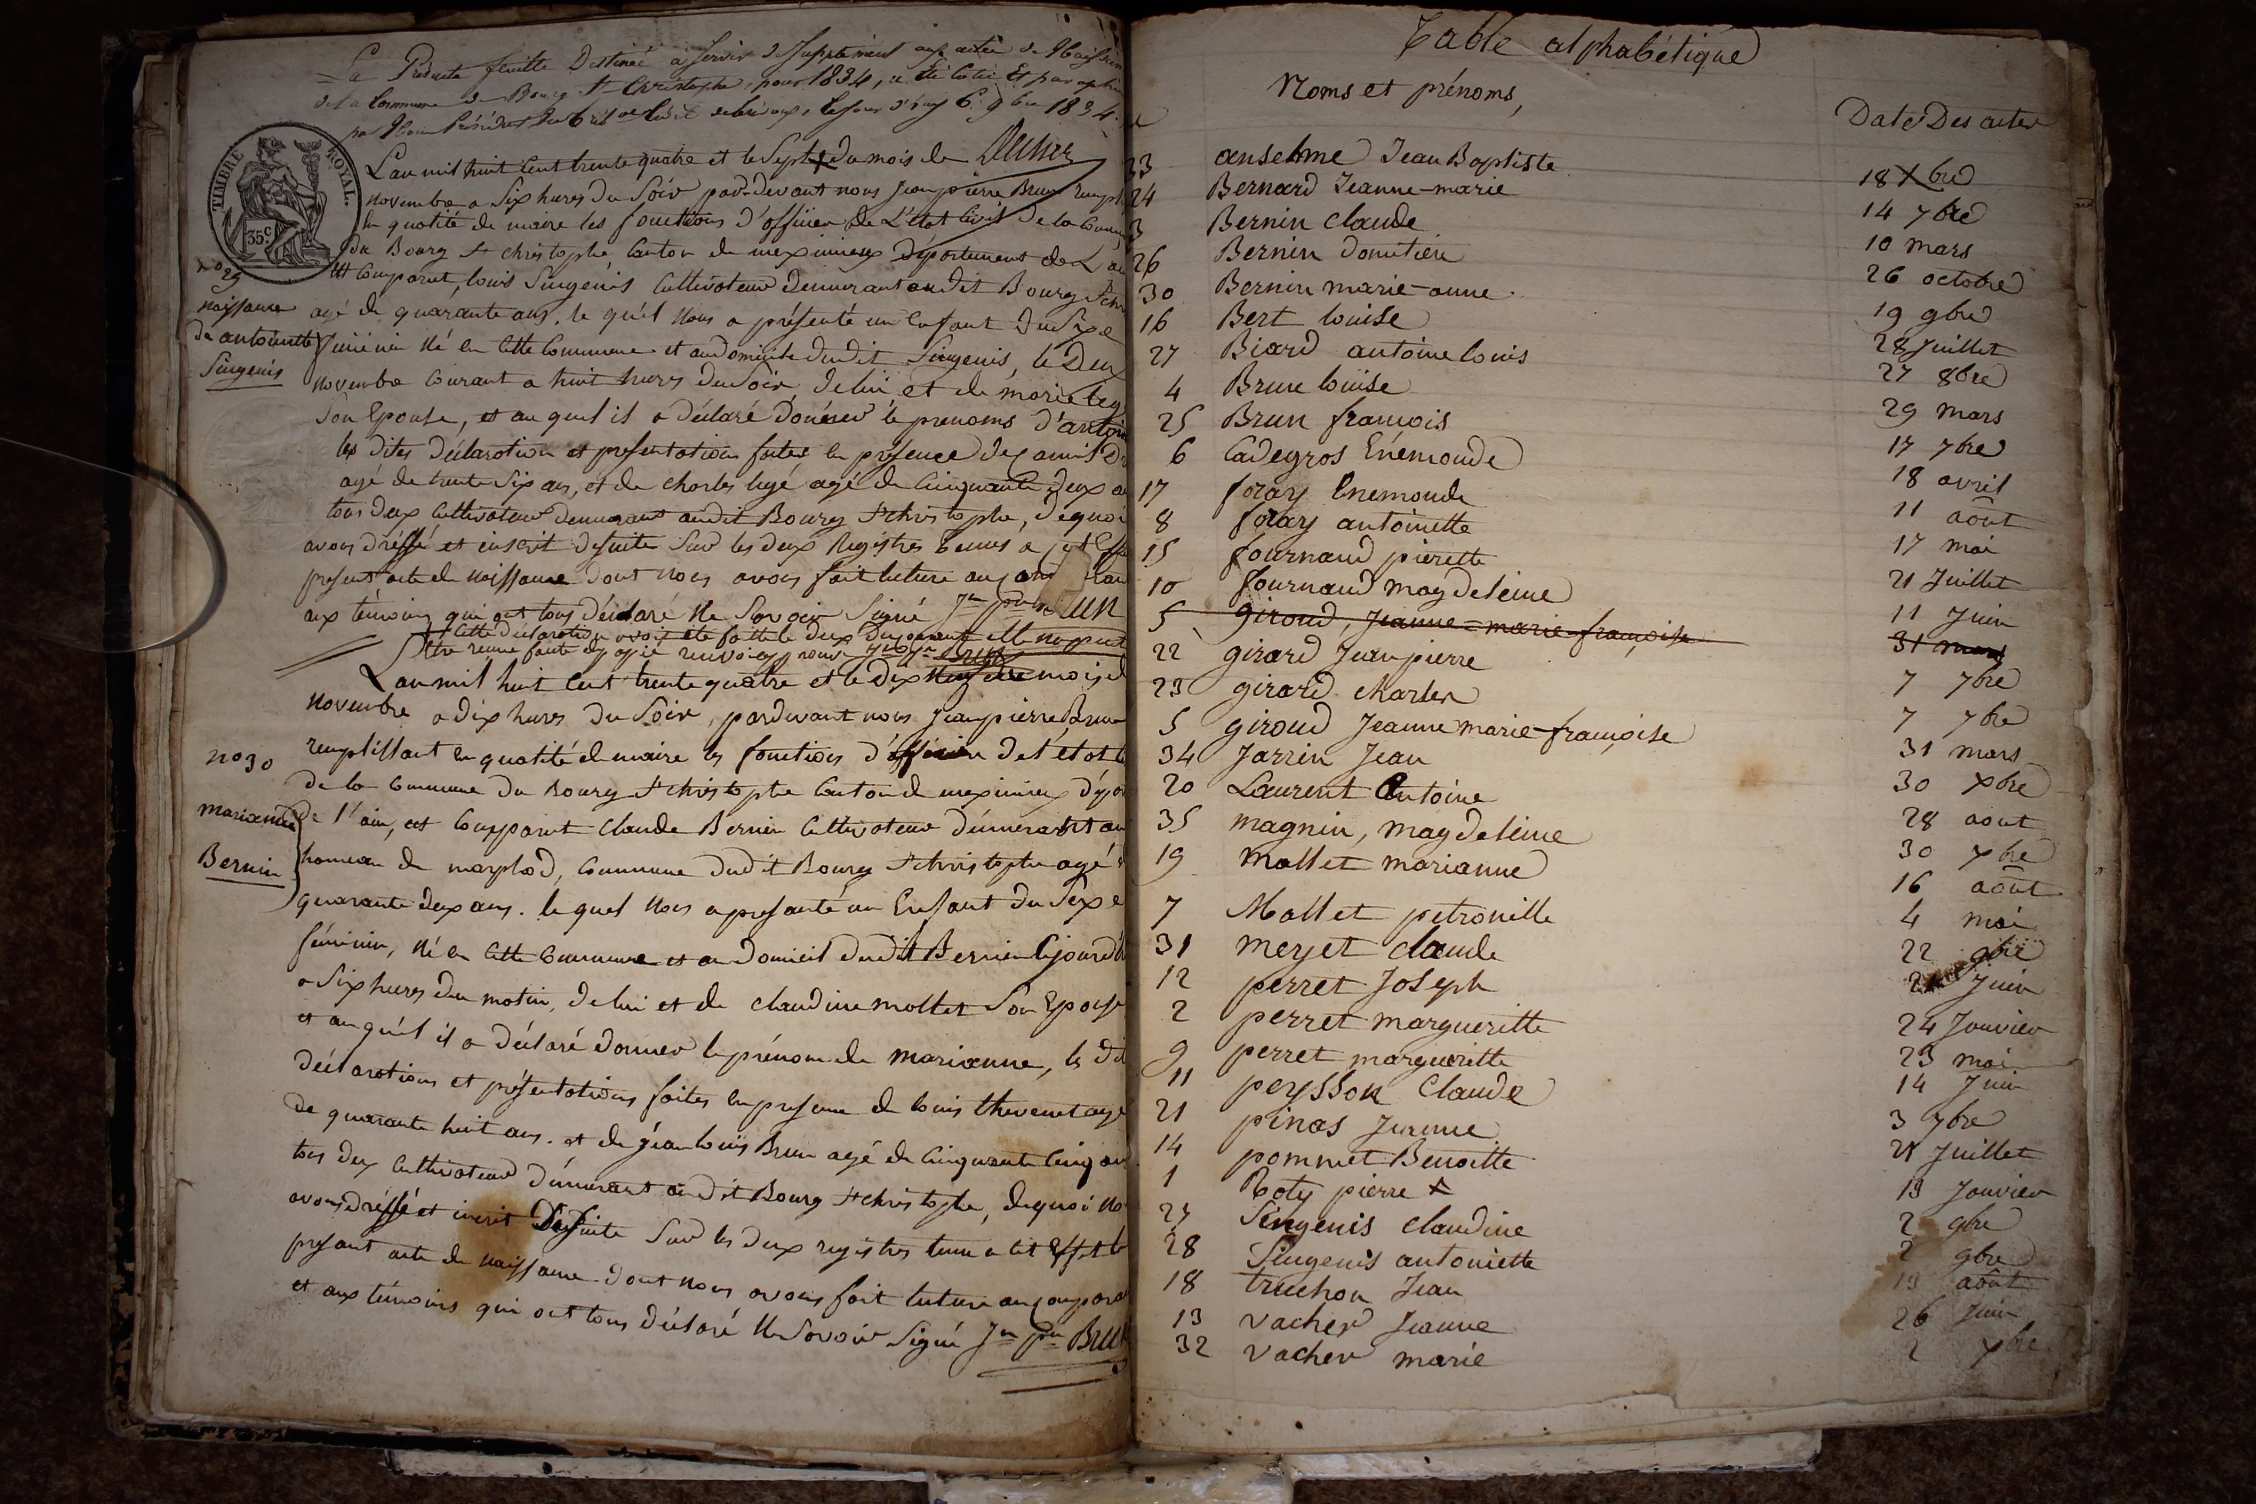 La Présente feuille Destinée à servir de Supplément aux actes de Naissan
de la Commune de Bourg St Christophe, pour 1834, a été Cotée Et paraphée
par Nous Président du 6 9bre 1834
TIMBRE ROYAL.
35c
L'an mil huit cent trente quatre et le Sept du mois de
novembre a Six hures du Soir par-devant nous Jean pierre Brun rempl
en qualité de maire les fonctions d'officier de L'état Civil de la Comm
du Bourg St christophe Canton de meximieux département de L'ai
est Comparut, louis Singenis Cultivateur demeurant au dit Bourg St chr
no 29
naissance
de antoinette
Singenis
agé de quarante ans. le qu'el nous a présenté un Enfant du Sexe
féminin né en Cette Commune et au domicile dudit Singenis, le Deux
novembre Courant a huit hures du Soir de lui et de marie
Son Epouse, et au quel il a déclaré donner le prenoms d'antoin
les dites déclaration et presentation faites en présence de
agé de trente Six ans, et de charles agé de Cinquante deux a
tous deux Cultivateur demeurant audit Bourg St christophe, de quoi
avons dréssé et inscrit desuite Sur les deux Registres tenus a cet Effe
present acte de naissance dont nous avons fait lecture au
aux témoins qui ont tous déclaré Ne Savoir Signé Jn pre BRUN
L'an mil huit Cent trente quatre et le Dix mois d
novembre a dix hures du Soir, pardevant nous Jean pierre Brun
no 30
marianne
Bernin
remplissant en qualité de maire les fonctions d'officier de l'état
de la Commune du Bourg St christophe Canton de meximieux dépar
de l'ain, est Comparut Claude Bernin Cultivateur démeurant au
hameau de marfoz, Commune dudit Bourg St christophe agé
quarante deux ans. le quel nous a présenté un Enfant du Sexe
féminin, Né en Cette Commune et au domicil dudit Bernin
a Six hures du matin, de lui et de claudine mollet Son Epouse
et au qu'el il a déclaré donner le prénom de marianne, les dit
déclarations et présentations faites en presence de louis thevenet agé
de quarante huit ans. et de jéan louis Brun agé de Cinquante Cinq ans
tous deux Cultivateur démeurant au dit Bourg St christophe, de quoi No
avons dréssé et inscrit Desuite Sur les deux registres tenu a cet Effet le
présent acte de naissance dont nous avons fait lecture au Comparant
et aux témoins qui ont tous déclaré Ne Savoir Signé Jn pre BRUN
Table alphabétique
Noms et prénoms,
Date Des actes
33 anselme Jean Baptiste 18 Xbre
24 Bernard Jeanne-marie 14 7bre
3 Bernin Claude 10 mars
26 Bernin Domitien 26 octobre
30 Bernin marie-anne 19 9bre
16 Bert louise 28 Juillet
27 Biard antoine louis 27 8bre
4 Brun louise 29 mars
25 Brun françois 17 7bre
6 Cadegros Enémonde 18 avril
17 foray Enemonde 11 août
8 foray antoinette 17 mai
15 fournand pierette 21 Juillet
10 fournand magdeleine 11 Juin
5 giroud, Jeanne-marie-françoise 31 mars
22 girard Jean pierre 7 7bre
23 girard charles 7 7bre
5 giroud Jeanne marie-françoise 31 mars
34 Jarrin Jean 30 Xbre
20 Laurent Antoine 28 aout
35 magnin, magdeleine 30 Xbre
19 mollet marianne 16 août
7 Mollet petronille 4 mai
31 merjet claude 22 9bre
12 perret Joseph Juin
2 perret margueritte 24 Janvier
9 perret margueritte 23 mai
11 peysson Claude 14 Juin
21 pinas Jeanne 3 7bre
14 pommet Benoitte Juillet
1 Roty pierre x 13 Janvier
27 Singenis claudine 2 9bre
28 Singenis antoniette 2 9bre
18 truchon Jean 13 août
13 vacher Jeanne 26 Juin
32 vacher marie 2 Xbre